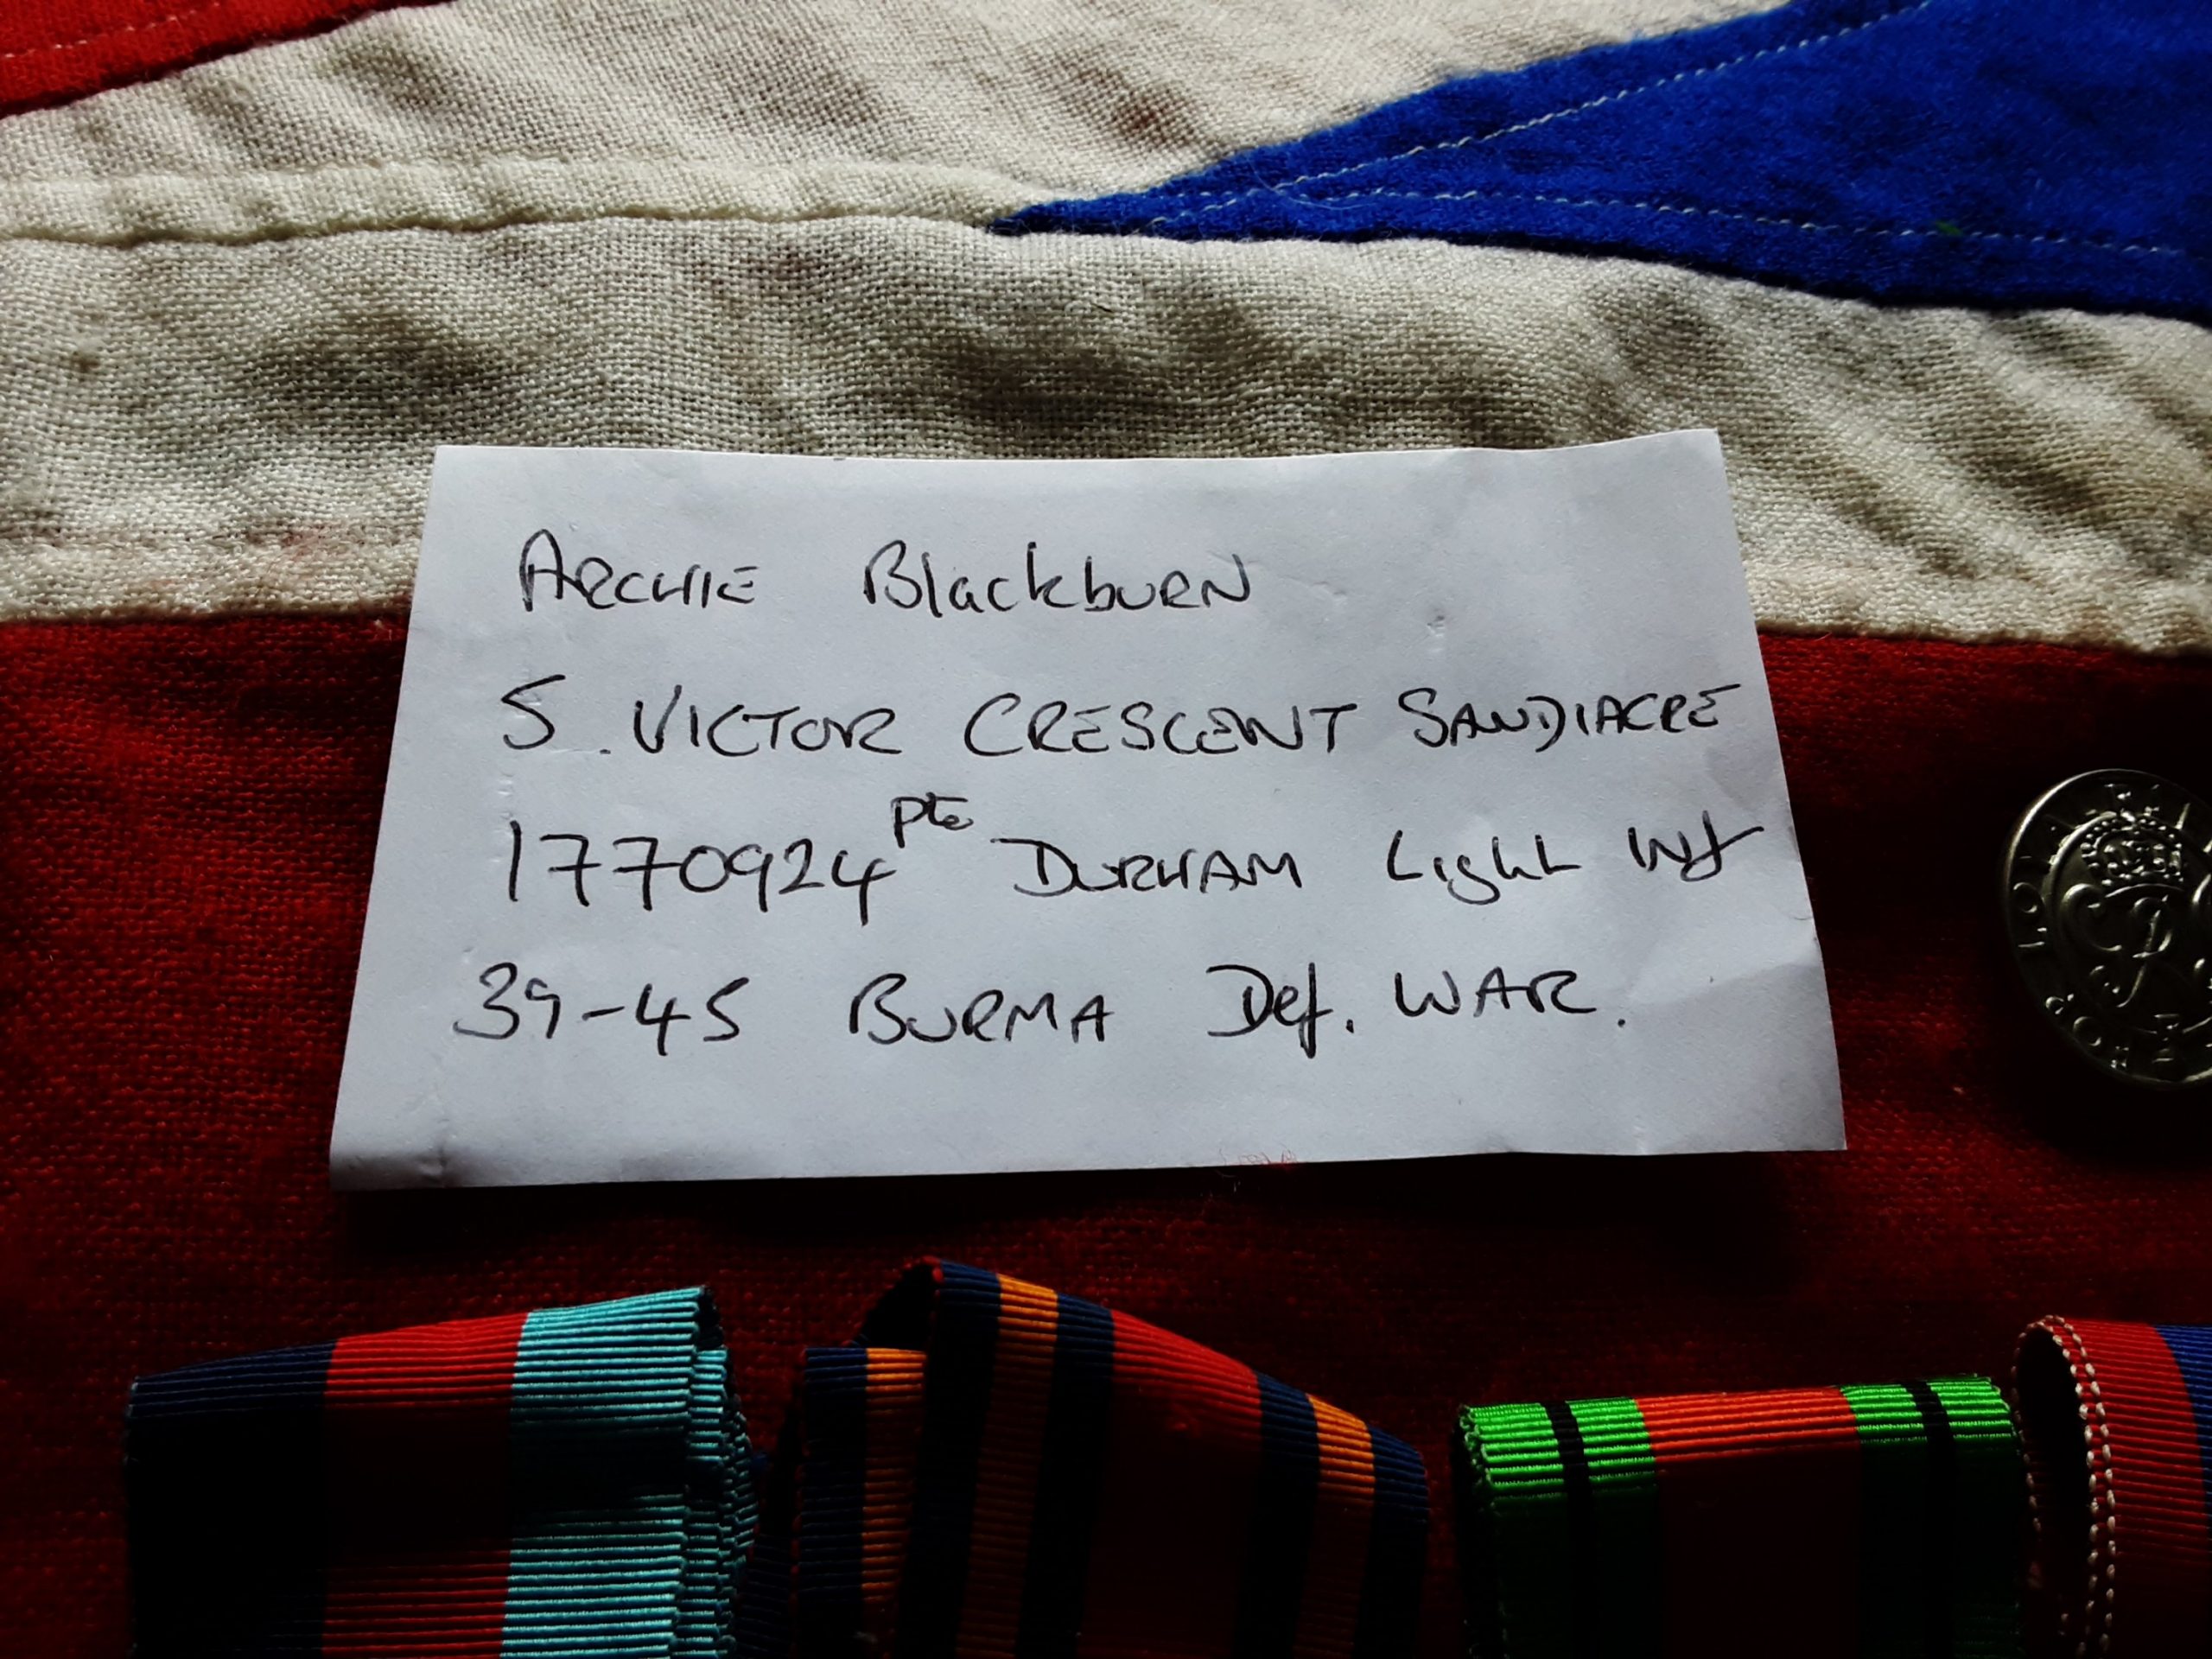 ARCHIE BlackbURN
5. VICTOR CRESCENT SANDIACRE
1770924 Pte DURHAM Light Inf
39-45 BURMA Def. WAR.